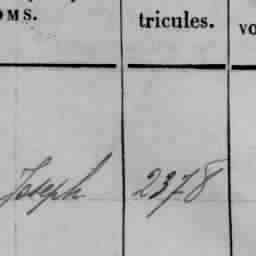 OMS. tricules. vo
Joseph 2378